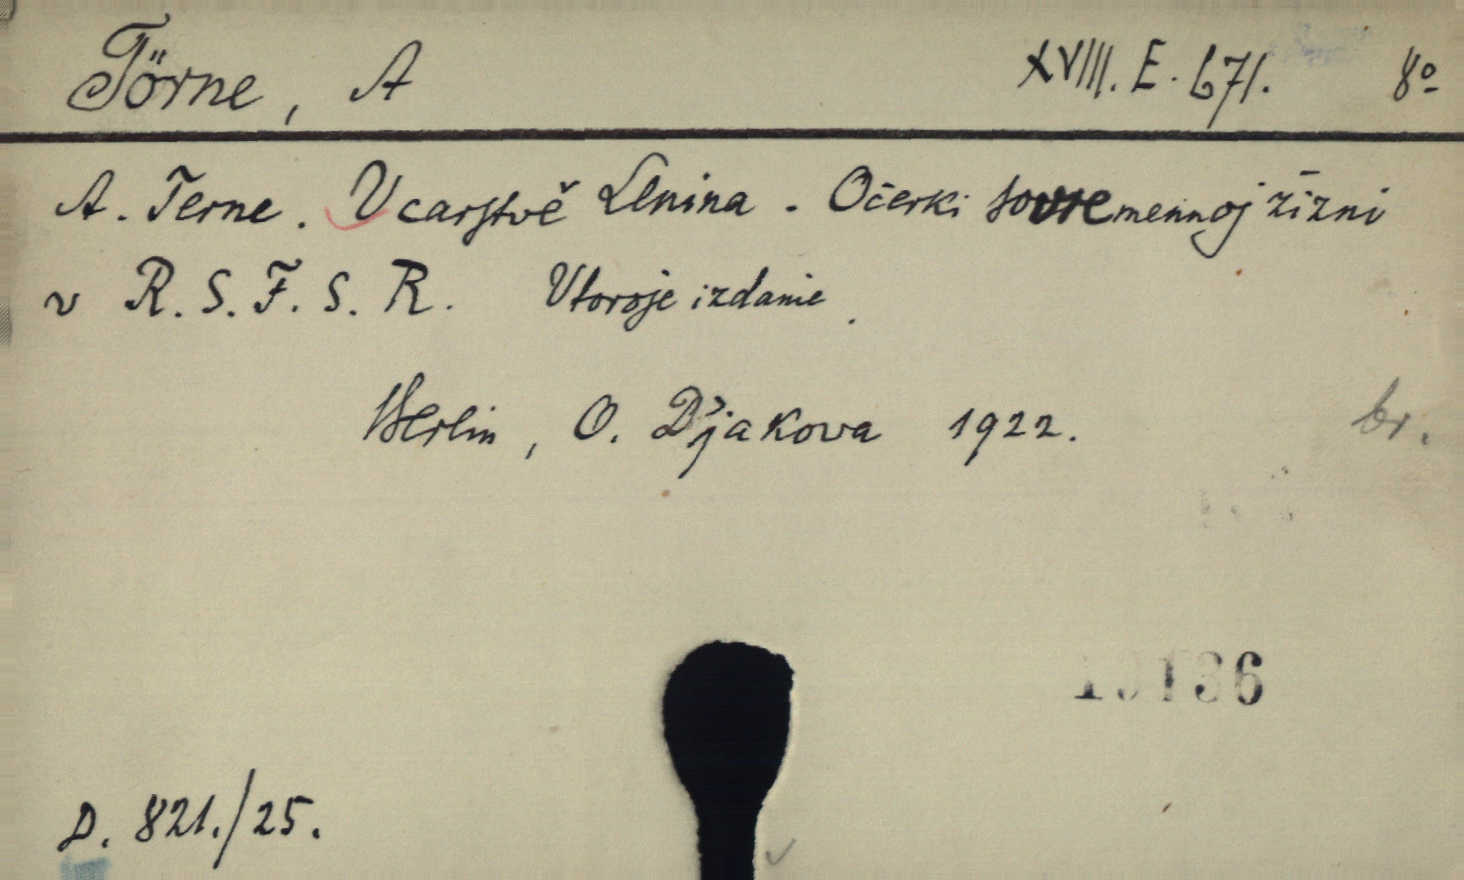 Törne, A XVIII. E. 671. 8º
A. Terne. V carstvě Lenina. Očerki sovremennoj žizni
v R. S. F. S. R. Vtoroje izdanie.
Berlin, O. D'jakova 1922. br.
D. 821./25.